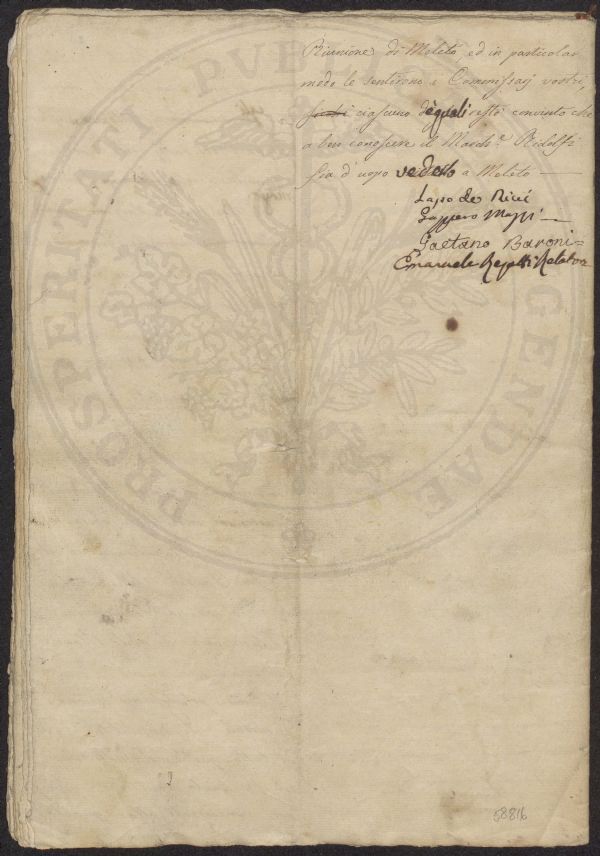 Riunione di Meleto, ed in particolar
modo le sentirono i Commissarj vostri,
ciascuno de quali restò convinto che
a ben conoscere il March.e Ridolfi
sia d'uopo vederlo a Meleto —
Lapo de Ricci
Gaetano Baroni =
Emanuele Repetti Relatore
PROSPERITATI PUB AUGENDAE
58816